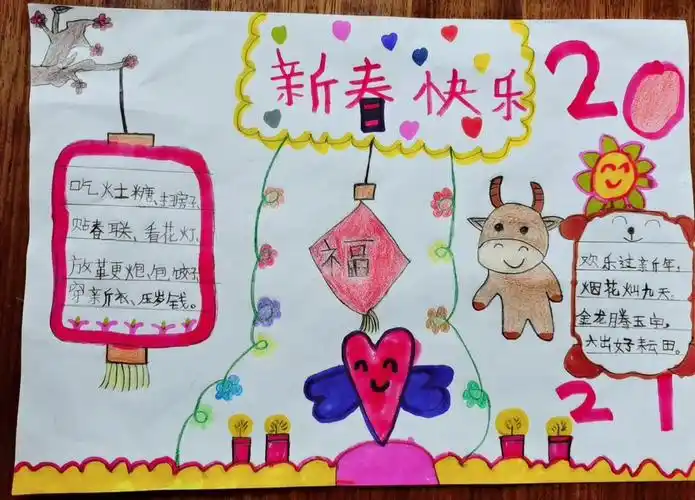 新春快乐
20
吃灶糖、扫房子
贴春联、看花灯、
放革更炮、包饺子
穿新衣、压岁钱。
福
欢乐过新年，
烟花灿九天。
金龙腾玉宇，
大出好耘田。
21